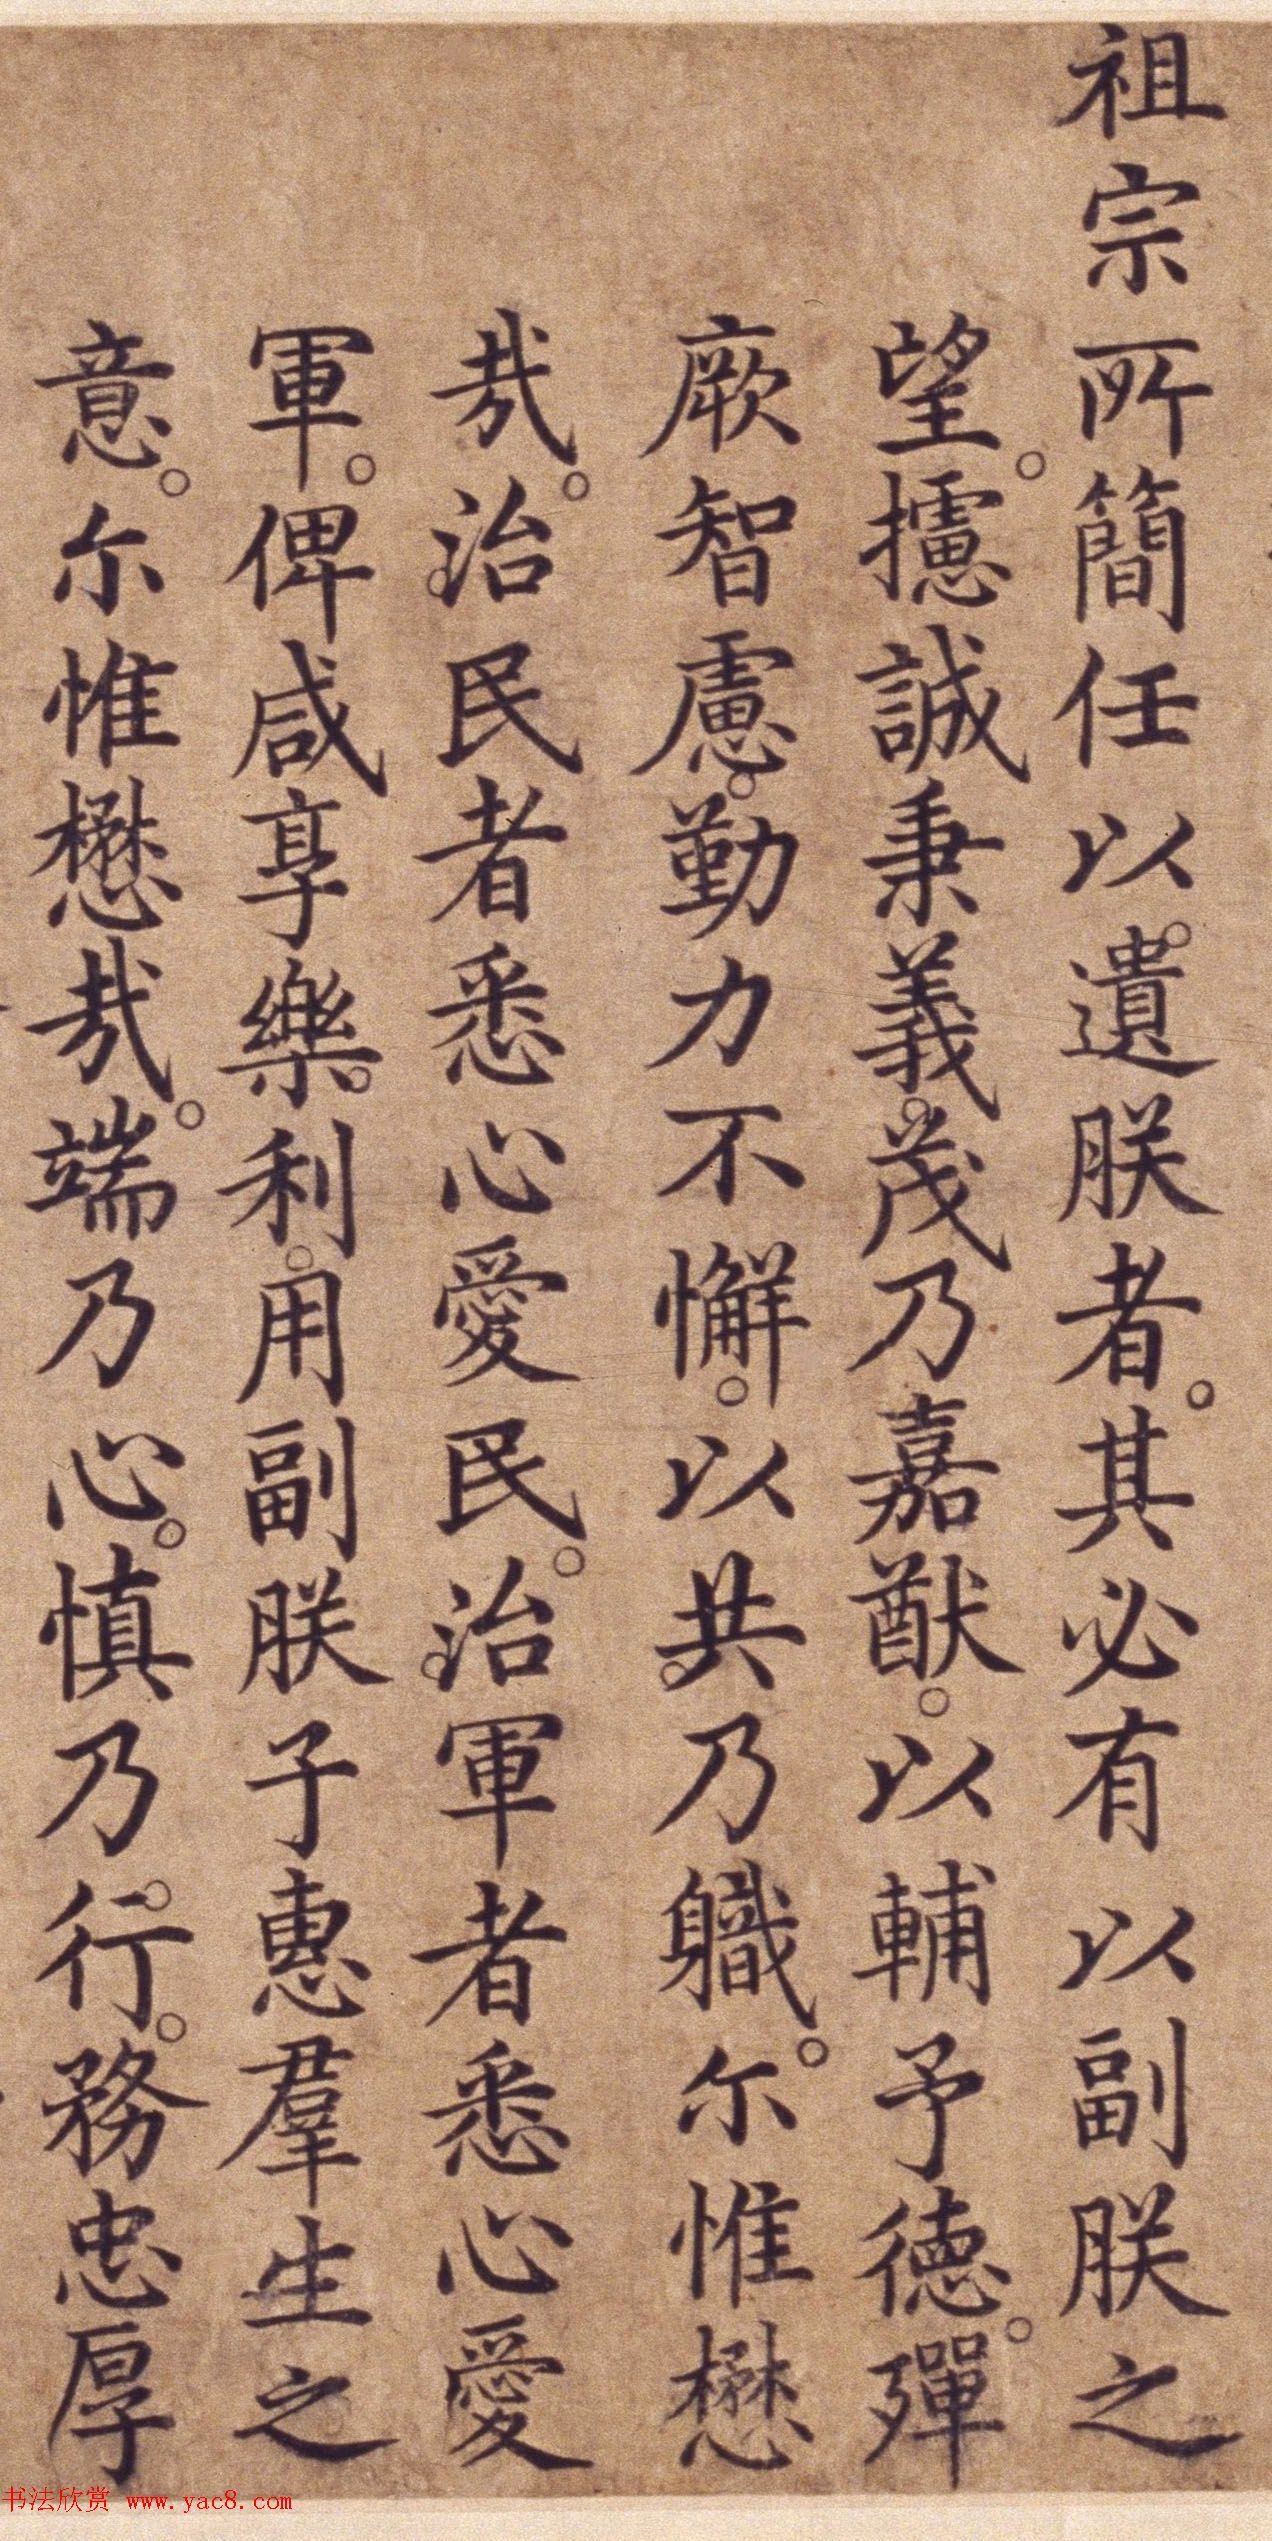 祖宗所簡任以遺朕者。其必有以副朕之
望。攄誠秉義。茂乃嘉猷。以輔予德。殫
厥智慮。勤力不懈。以共乃職。尓惟懋
哉。治民者悉心愛民。治軍者悉心愛
軍。俾咸享樂利。用副朕子惠羣生之
意。尓惟懋哉。端乃心。慎乃行。務忠厚
书法欣赏 www.yac8.com